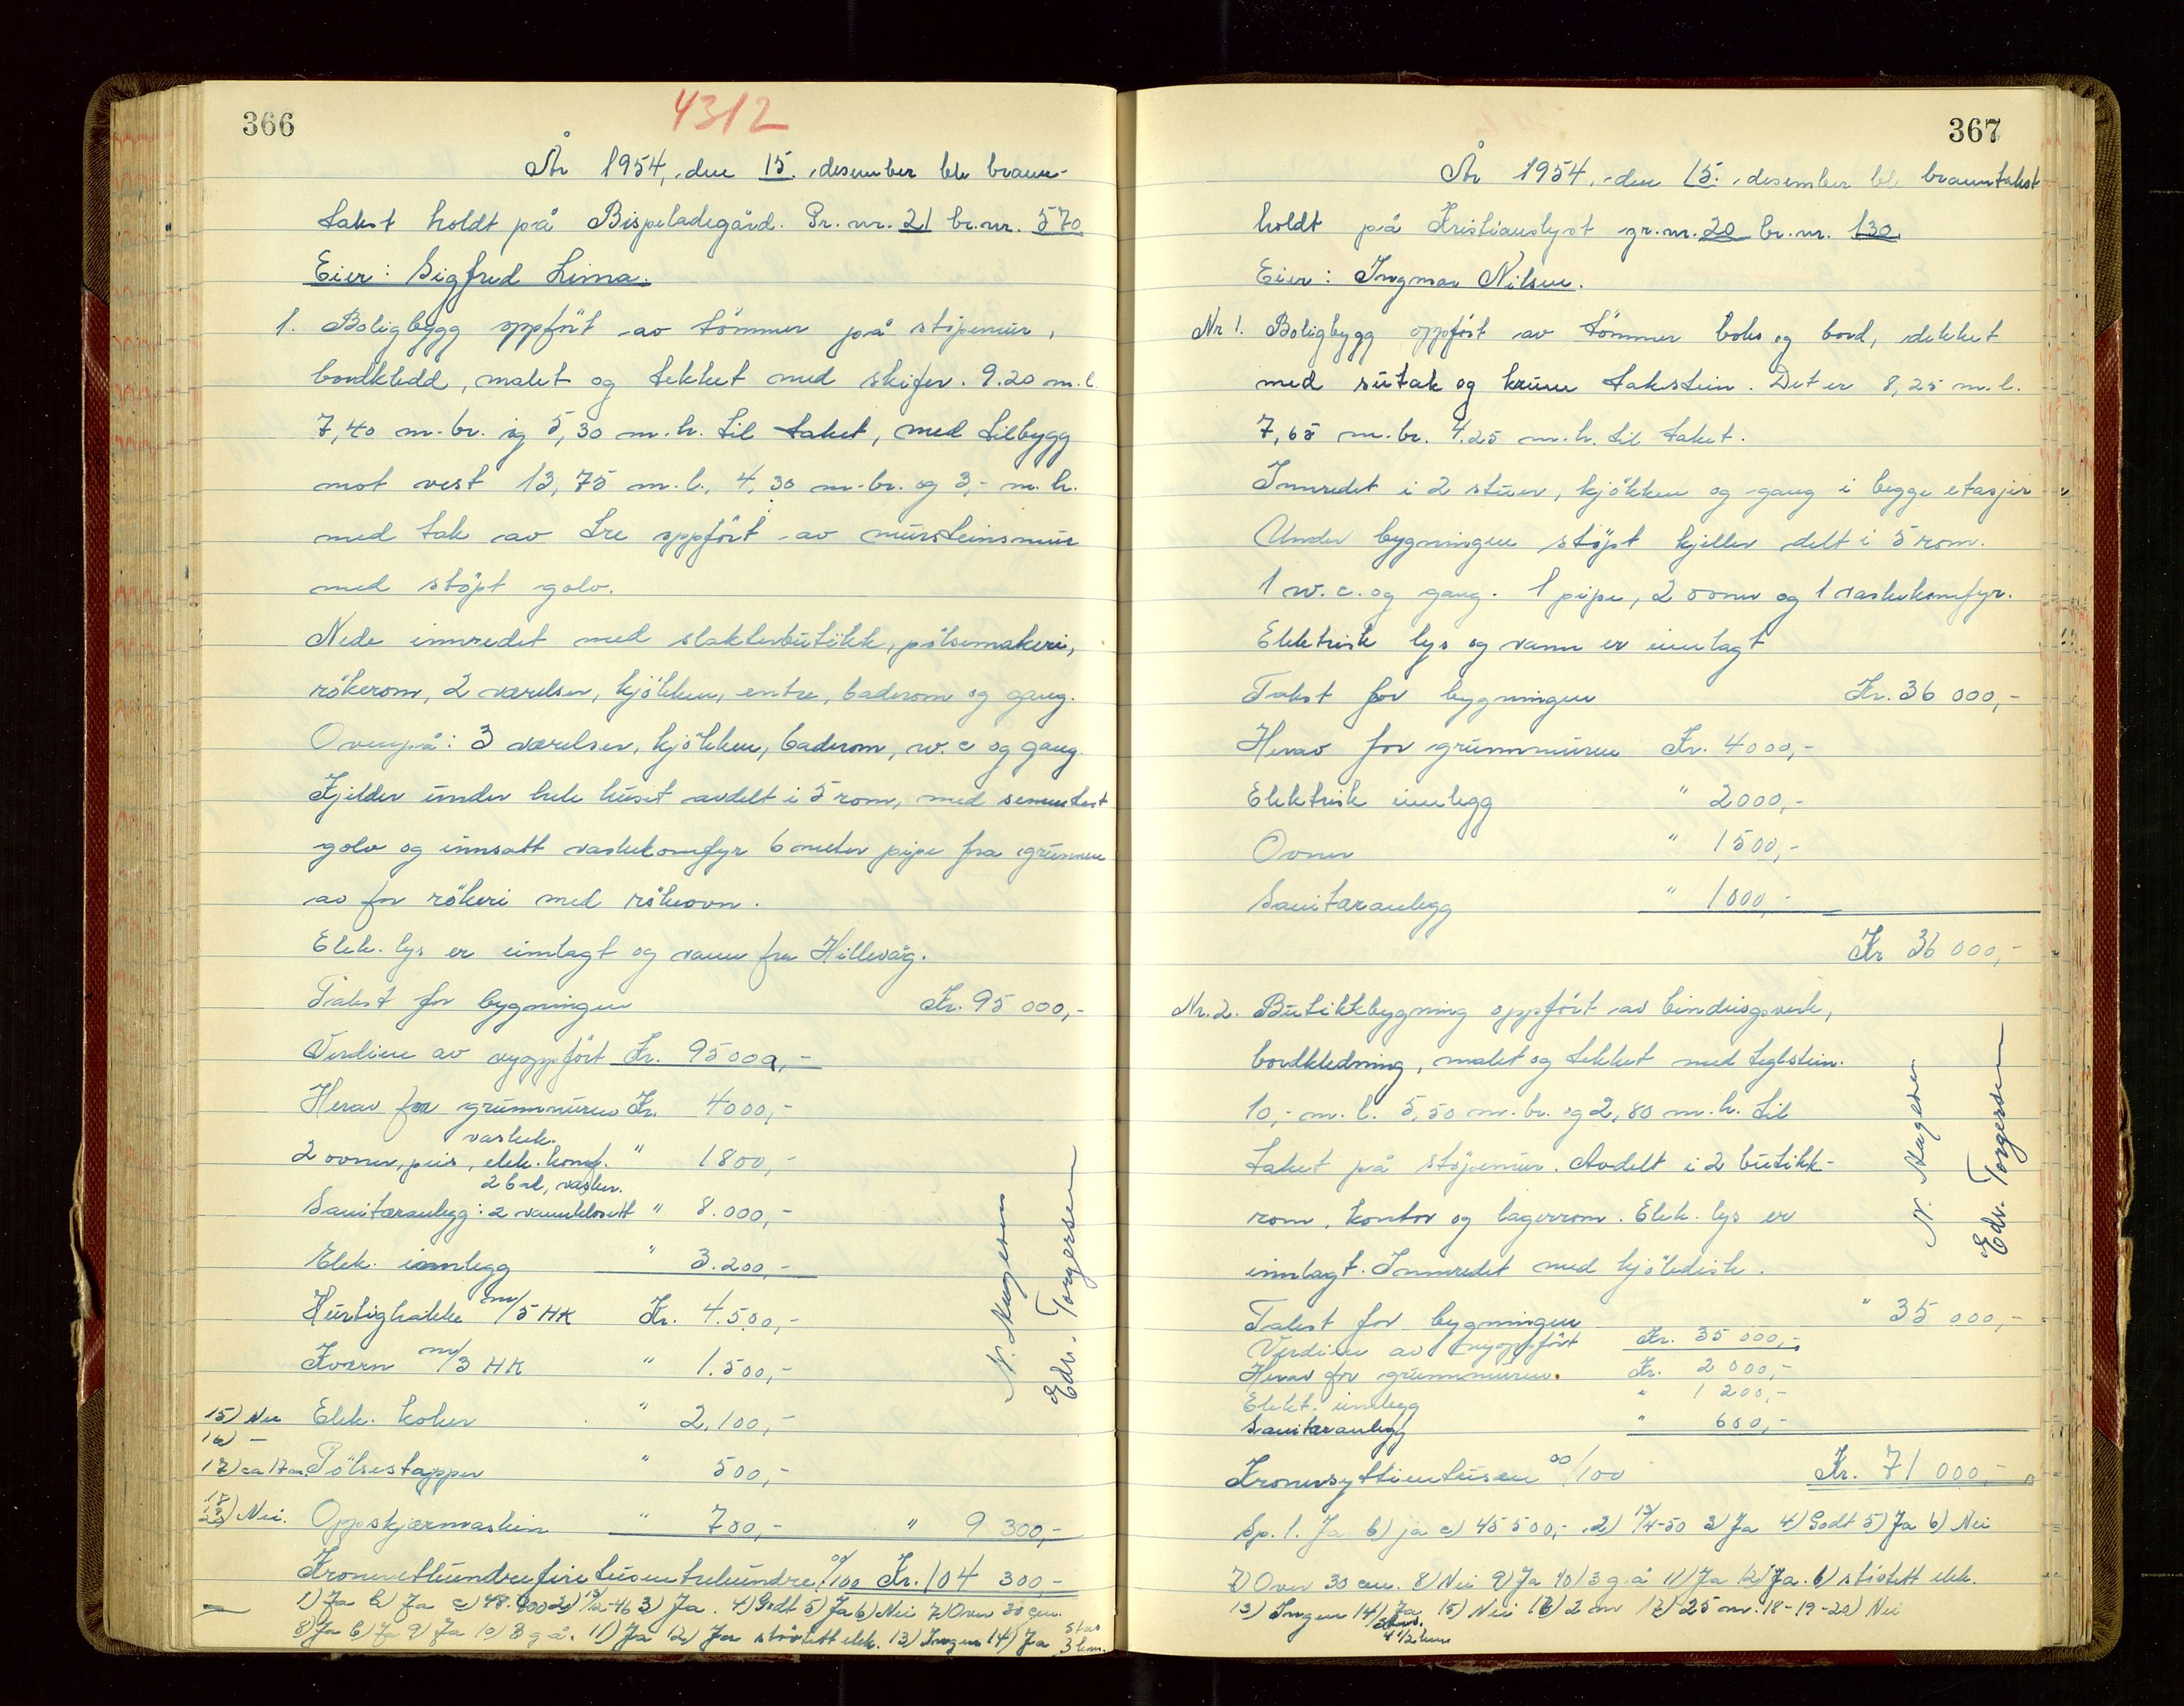 366
4312
År 1954, den 15. desember ble brann-
takst holdt på Bispeladegård. Gr. nr. 21 br. nr. 570
Eier: Sigfred Lima.
1. Boligbygg oppfört av tömmer på stöpemur,
bordkledd, malet og tekket med skifer. 9.20 m. l.
7,40 m. br. og 5,30 m. h. til taket, med tilbygg
mot vest 13,75 m. l., 4,30 m. br. og 3,- m. h.
med tak av tre oppfört av mursteinsmur
med stöpt golv.
Nede innredet med slakterbutikk, pölsemakeri,
rökerom, 2 værelser, kjökken, entre, baderom og gang.
Ovenpå: 3 værelser, kjökken, baderom, w. c og gang.
Kjelder under hele huset avdelt i 5 rom, med sementert
golv og innsatt vaskekomfyr 6 meter pipe fra grunnen
av for rökeri med rökeovn.
Elek. lys er innlagt og vann fra Hillevåg.
Takst for bygningen Kr. 95 000,-
Verdien av nyoppfört Kr. 95000,-
Herav for grunnmuren Kr. 4000,-
vaskek.
2 ovner, peis, elek. komf. " 1800,-
2 bad, vasker.
Sanitæranlegg: 2 vannklosett " 8.000,-
Elek. innlegg " 3.200,-
Hurtighakke m/5 HK Kr. 4.500,-
Kværn m/3 HK " 1.500,-
15) Nei Elek. koker " 2.100,-
16) —
17) ca 17 m. Pölsestapper " 500,-
18
19
20) Nei. Oppskjærmaskin " 700,- " 9 300,-
Kroneretthundreogfiretusentrehundre 00/100 Kr. 104 300,-
1) Ja b) Ja c) 48.900 2) 13/12-46 3) Ja. 4) Godt 5) Ja 6) Nei 7) Over 30 cm.
8) Ja b) Ja 9) Ja 10) 3 g. å. 11) Ja 12) Ja stövtett elek. 13) Ingen 14) Ja Stav 3 km.
Edv. Torgersen
367
År 1954, den 15. desember ble branntakst
holdt på Kristianslyst gr. nr. 20 br. nr. 130
Eier: Ingmar Nilsen.
Nr 1. Boligbygg oppfört av tömmer boks og bord, dekket
med sutak og krum takstein. Det er 8,25 m. l.
7,65 m. br. 4.25 m. h. til taket.
Innredet i 2 stuer, kjökken og gang i begge etasjer
Under bygningen stöpt kjeller delt i 5 rom.
1 w. c. og gang. 1 pipe, 2 ovner og 1 vaskekomfyr.
Elektrisk lys og vann er innlagt
Takst for bygningen Kr. 36 000,-
Herav for grunnmuren Kr. 4000,-
Elektrisk innlegg " 2000,-
Ovner " 1500,-
Sanitæranlegg " 1000,-
Kr 36 000,-
Nr. 2. Butikkbygning oppfört av bindingsverk,
bordkledning, malet og tekket med teglstein.
10,- m. l. 5,50 m. br. og 2,80 m. h. til
taket på stöpemur. Avdelt i 2 butikk-
rom, kontor og lagerrom. Elek. lys er
innlagt. Innredet med kjöledisk.
Takst for bygningen " 35 000,-
Verdien av nyoppfört Kr. 35 000,-
Herav for grunnmuren. Kr. 2 000,-
Elekt. innlegg " 1 200,-
Sanitæranlegg " 600,-
Kronersyttientusen 00/100 Kr. 71 000,-
Sp. 1. Ja b) ja c) 45 500,- 2) 13/4-50 3) Ja 4) Godt 5) Ja 6) Nei
7) Over 30 cm. 8) Nei 9) Ja 10) 3 g. å 11) Ja 12) Ja. b) stövtett elek.
13) Ingen 14) Ja 15) Nei 16) 2 m 17) 25 m. 18-19-20) Nei
Stav. 4 1/2 km
Edv. Torgersen